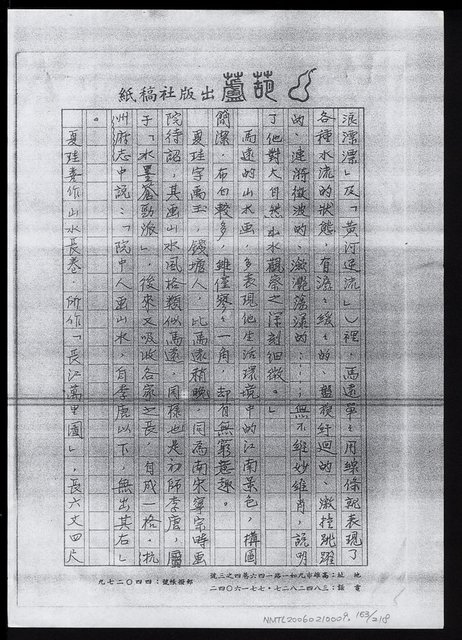 葫蘆出版社稿紙
浪漂漂」及「黃河逆流」）裡，馬遠單單用線條就表現了
各種水流的狀態，有 緩緩的、盤旋紆迴的、激撞跳躍
的、漣漪微波的、激灩蕩漾的……；無不維妙維肖，說明
了他對大自然山水觀察之深刻細微。」
馬遠的山水畫，多表現他生活環境中的江南景色，構圖
簡潔，布白較多，雖僅寥寥一角，却有無窮意趣。
夏珪字禹玉，錢塘人，比馬遠稍晚，同為南宋寧宗時畫
院待詔，其畫山水風格類似馬遠，同樣也是初師李唐，屬
于「水墨蒼勁派」，後來又吸收各家之長，自成一格，杭
州府志中說：「院中人畫山水，自李唐以下，無出其右」
。
夏珪喜作山水長卷，所作「長江萬里圖」，長六丈四尺
地址：高雄市九如一路一四六巷四之三號
電話：三八四二八二七‧七七一六〇四二
郵撥帳號：四四〇二七九
NMTL20060210009, 153/218